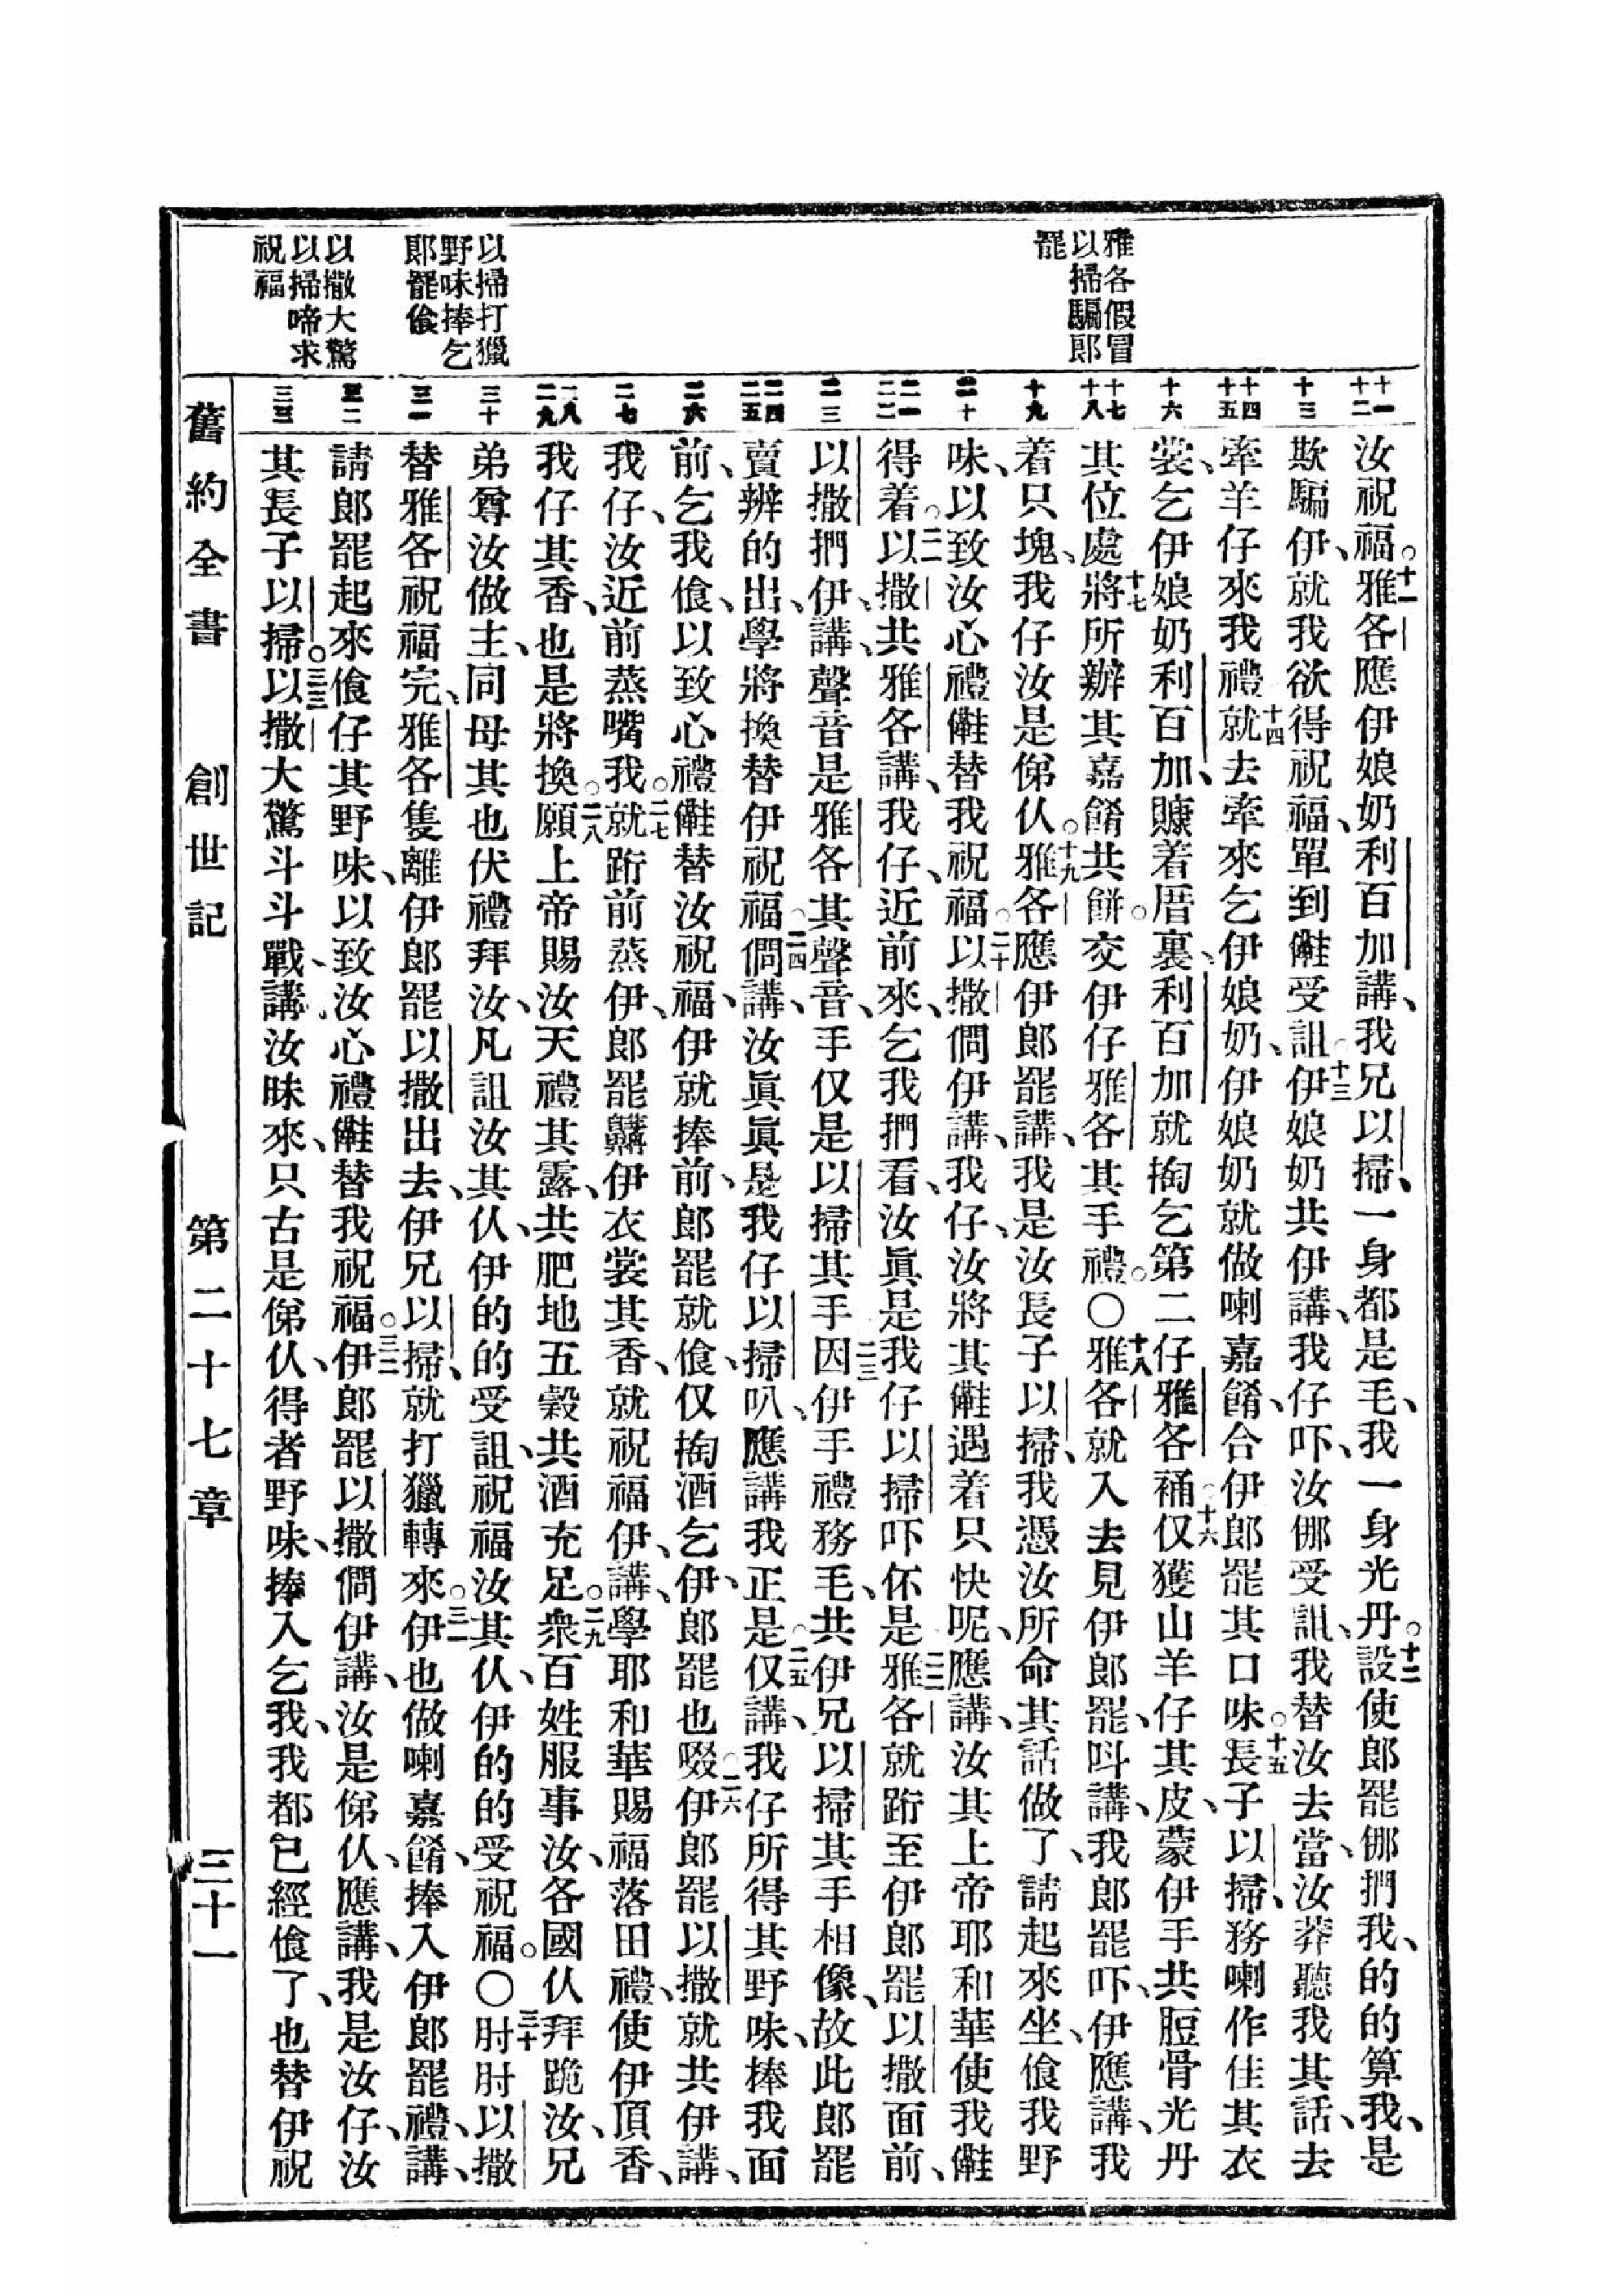 雅各假冒
以掃騙郎
罷
以掃打獵
野味捧乞
郎罷僋
以撒大驚
以掃啼求
祝福
十一 十二
十三
十四 十五
十六
十七 十八
十九
二十
二一 二二
二三
二四 二五
二六
二七
二八 二九
三十
三一
三二
三三
汝祝福。十一雅各應伊娘奶利百加講、我兄以掃、一身都是毛、我一身光丹。十二設使郎罷㑚捫我、的的算我、是
欺騙伊、就我欲得祝福、單到㒬受詛。十三伊娘奶共伊講、我仔吓、汝㑚受詛、我替汝去當、汝莽聽我其話、去
牽羊仔來我禮。十四就去牽來乞伊娘奶、伊娘奶就做喇嘉餚、合伊郎罷其口味。十五長子以掃、務喇作佳其衣
裳、乞伊娘奶利百加、賺着厝裏、利百加就掏乞第二仔雅各補。十六仅獲山羊仔其皮、蒙伊手共脰骨光丹
其位處、十七將所辦其嘉餚共餅。交伊仔雅各其手禮。〇十八雅各就入去見伊郎罷、呌講、我郎罷吓、伊應講、我
着只塊、我仔汝是俤仈。十九雅各應伊郎罷講、我是汝長子以掃、我憑汝所命其話做了、請起來坐、僋我野
味、以致汝心禮㒬替我祝福。二十以撒僩伊講、我仔、汝將其㒬遇着只快呢、應講、汝其上帝耶和華使我㒬
得着。二一以撒共雅各講、我仔、近前來、乞我捫看、汝眞是我仔以掃吓、伓是。二二雅各就跨至伊郎罷以撒面前、
以撒捫伊、講、聲音是雅各其聲音、手仅是以掃其手。二三因伊手禮務毛、共伊兄以掃其手相像、故此郎罷
賣辨的出、學將換替伊祝福。二四僩講、汝眞眞是我仔以掃叭、應講我正是。二五仅講、我仔所得其野味、捧我面
前、乞我僋、以致心禮㒬替汝祝福、伊就捧前、郎罷就僋、仅掏酒乞伊、郎罷也啜。二六伊郎罷以撒就共伊講、
我仔、汝近前蒸嘴我。二七就跨前蒸伊、郎罷䶐伊衣裳其香、就祝福伊、講、學耶和華賜福落田禮、使伊頂香、
我仔其香、也是將換。二八願上帝賜汝天禮其露、共肥地五穀、共酒充足。二九衆百姓服事汝、各國仈拜跪汝、兄
弟尊汝做主、同母其也伏禮拜汝、凡詛汝其仈、伊的的受詛、祝福汝其仈、伊的的受祝福。〇三十肘肘以撒
替雅各祝福完、雅各隻離伊郎罷以撒出去、伊兄以掃、就打獵轉來。三一伊也做喇嘉餚、捧入伊郎罷禮、講、
請郎罷起來僋仔其野味、以致汝心禮㒬替我祝福。三二伊郎罷以撒僩伊講、汝是俤仈、應講、我是汝仔、汝
其長子以掃。三三以撒大驚斗斗戰、講、汝昧來、只古是俤仈、得者野味、捧入乞我、我都已經僋了、也替伊祝
舊約全書 創世記 第二十七章 三十一